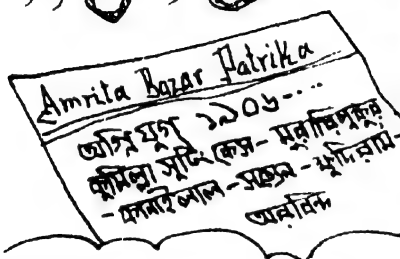 Amrita Bazar Patrika
অগ্নি যুগ ১৯০৬-...
কুমিল্লা সুটিং কেস - মুরারিপুকুর
- কানাইলাল - সত্যেন - ক্ষুদিরাম -
অরবিন্দ